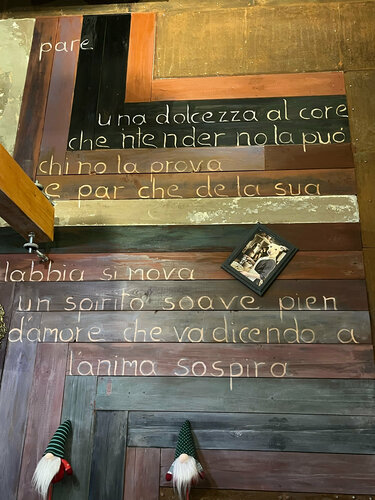 pare
una dolcezza al core
che ntender no la può
chi no la prova
e par che de la sua
labbia si mova
un spirito soave pien
d'amore che va dicendo a
l'anima sospira